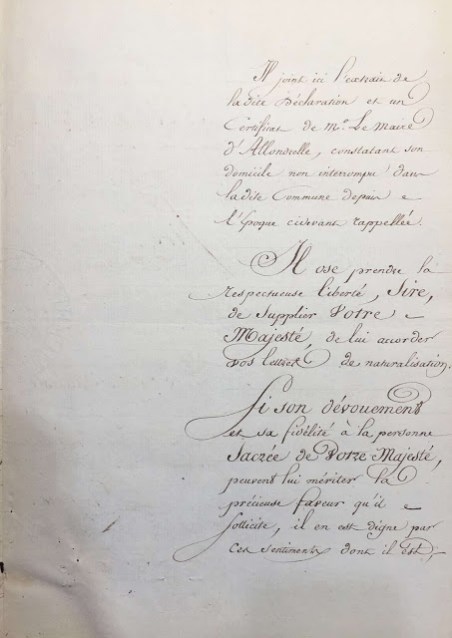 Il joint ici l'extrait de
la dite Déclaration et un
Certificat de Mr. Le Maire
d'Allondrelle, constatant son
domicile non interrompu dans
ladite Commune depuis
l'époque cidevant rappellée.
Il ose prendre la
respectueuse liberté, Sire,
de Supplier Votre
Majesté, de lui accorder
vos lettres de naturalisation.
Si son dévouement
et sa fidélité à la personne
Sacrée de Votre Majesté,
peuvent lui mériter la
précieuse faveur qu'il
sollicite, il en est digne par
ces sentiments dont il est,